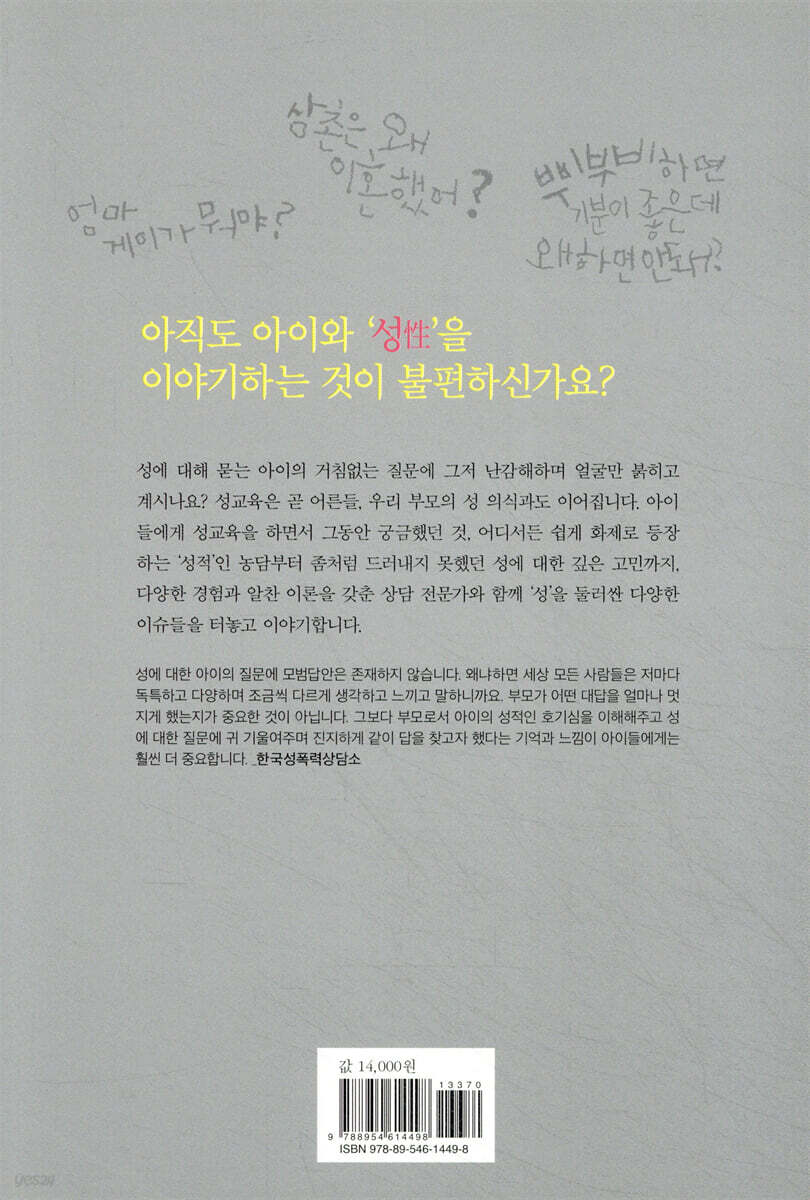 엄마
게이가 뭐야?
삼촌은 왜
이혼했어?
삐부비하면
기분이 좋은데
왜 하면 안돼?
아직도 아이와 ‘성性’을
이야기하는 것이 불편하신가요?
성에 대해 묻는 아이의 거침없는 질문에 그저 난감해하며 얼굴만 붉히고
계시나요? 성교육은 곧 어른들, 우리 부모의 성 의식과도 이어집니다. 아이
들에게 성교육을 하면서 그동안 궁금했던 것, 어디서든 쉽게 화제로 등장
하는 ‘성적’인 농담부터 좀처럼 드러내지 못했던 성에 대한 깊은 고민까지,
다양한 경험과 알찬 이론을 갖춘 상담 전문가와 함께 ‘성’을 둘러싼 다양한
이슈들을 터놓고 이야기합니다.
성에 대한 아이의 질문에 모범답안은 존재하지 않습니다. 왜냐하면 세상 모든 사람들은 저마다
독특하고 다양하며 조금씩 다르게 생각하고 느끼고 말하니까요. 부모가 어떤 대답을 얼마나 멋
지게 했는지가 중요한 것이 아닙니다. 그보다 부모로서 아이의 성적인 호기심을 이해해주고 성
에 대한 질문에 귀 기울여주며 진지하게 같이 답을 찾고자 했다는 기억과 느낌이 아이들에게는
훨씬 더 중요합니다. _한국성폭력상담소
값 14,000원
13370
9 788954 614498
ISBN 978-89-546-1449-8
yes24